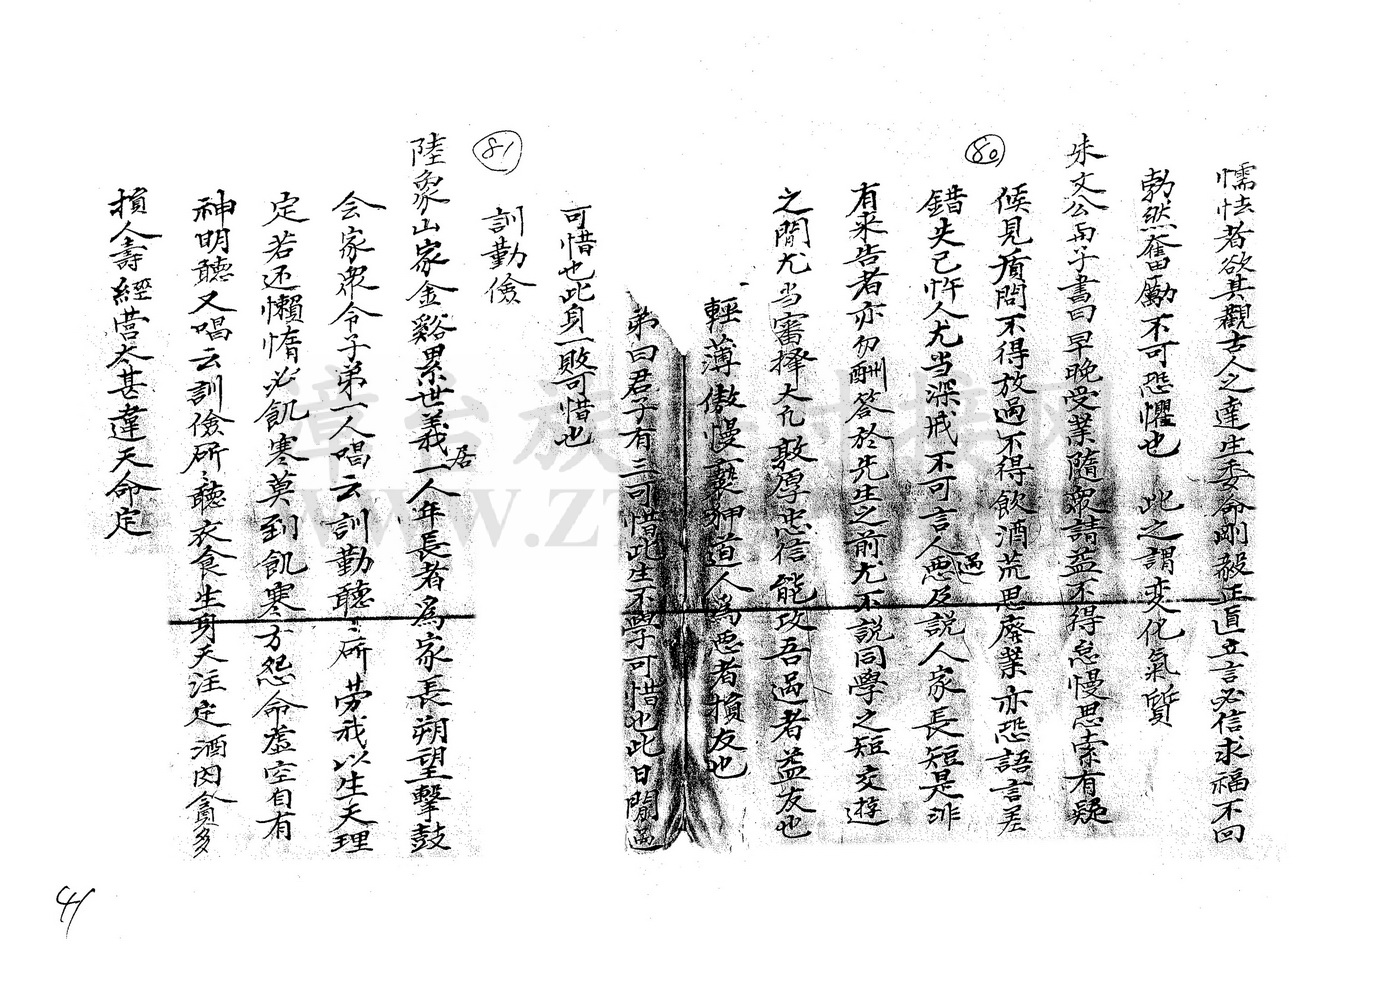 懦怯者欲其觀古人之達生委命剛毅正直立言必信求福不回
勃然奮勵不可恐懼也 此之謂变化氣質
80
朱文公与子書曰早晚受業隨衆請益不得怠慢思索有疑
候見質問不得放過不得飲酒荒思廢業亦恐語言差
錯失己忤人尤当深戒不可言人過悪及説人家長短是非
有来告者亦勿酬答於先生之前尤不説同學之短交遊
之間尤当審擇大凡敦厚忠信能攻吾過者益友也
輕薄傲慢褻狎道人為悪者損友也
弟曰君子有三可惜此生不學可惜也此日閒過
可惜也此身一敗可惜也
81
訓勤儉
陸象山家金谿累世義居一人年長者為家長朔望擊鼓
会家衆令子弟一人唱云訓勤聽〻所劳我以生天理
定若还懶惰必飢寒莫到飢寒方怨命虚空自有
神明聽又唱云訓儉所〻聽衣食生身天注定酒肉貪多
損人壽經营太甚違天命定
41
章台族譜對接网
WWW.ZT